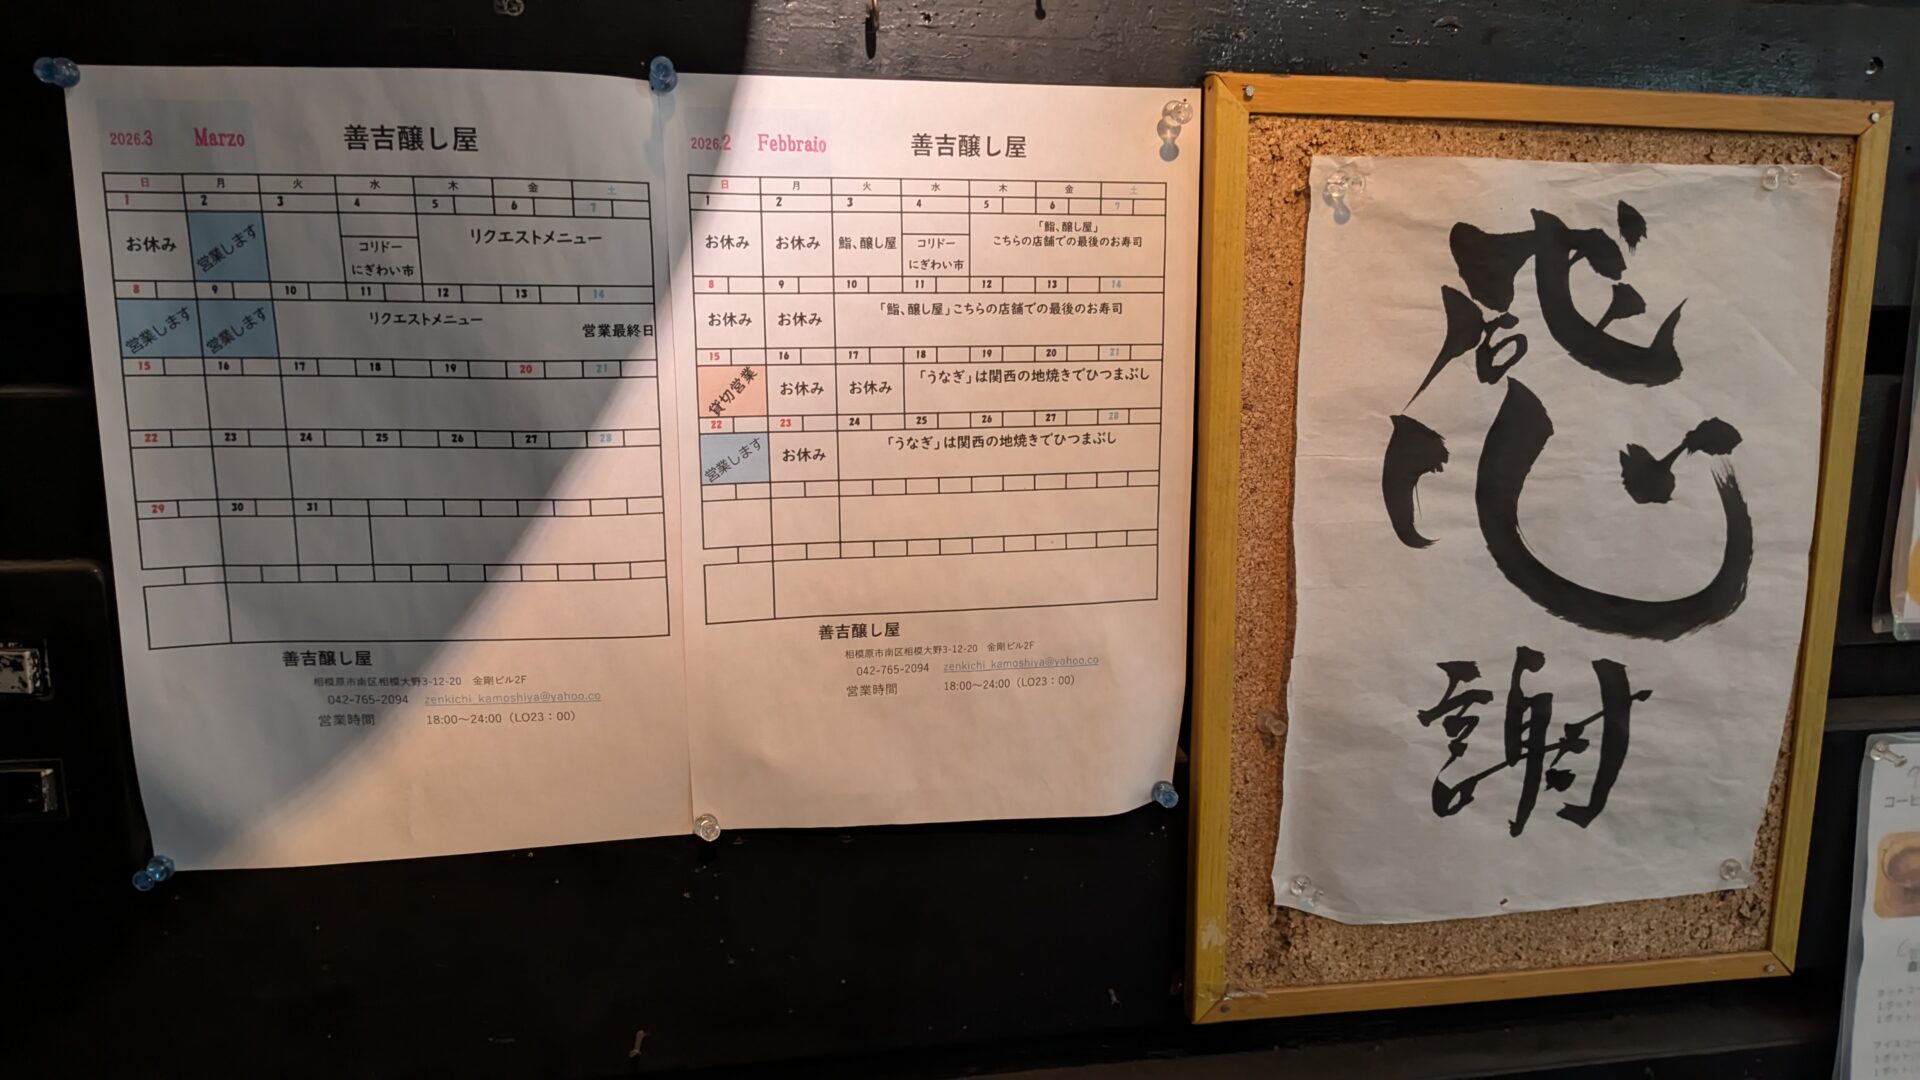 2026.3 Marzo 善吉醸し屋
日 月 火 水 木 金 土
1 2 3 4 5 6 7
お休み 営業します コリドー にぎわい市 リクエストメニュー
8 9 10 11 12 13 14
営業します 営業します リクエストメニュー 営業最終日
15 16 17 18 19 20 21
22 23 24 25 26 27 28
29 30 31
善吉醸し屋
相模原市南区相模大野3-12-20 金剛ビル2F
042-765-2094 zenkichi_kamoshiya@yahoo.co
営業時間 18:00～24:00（LO23：00）
2026.2 Febbraio 善吉醸し屋
日 月 火 水 木 金 土
1 2 3 4 5 6 7
お休み お休み 鮨、醸し屋 コリドー にぎわい市 「鮨、醸し屋」
こちらの店舗での最後のお寿司
8 9 10 11 12 13 14
お休み お休み 「鮨、醸し屋」こちらの店舗での最後のお寿司
15 16 17 18 19 20 21
貸切営業 お休み お休み 「うなぎ」は関西の地焼きでひつまぶし
22 23 24 25 26 27 28
営業します お休み 「うなぎ」は関西の地焼きでひつまぶし
善吉醸し屋
相模原市南区相模大野3-12-20 金剛ビル2F
042-765-2094 zenkichi_kamoshiya@yahoo.co
営業時間 18:00～24:00（LO23：00）
感謝